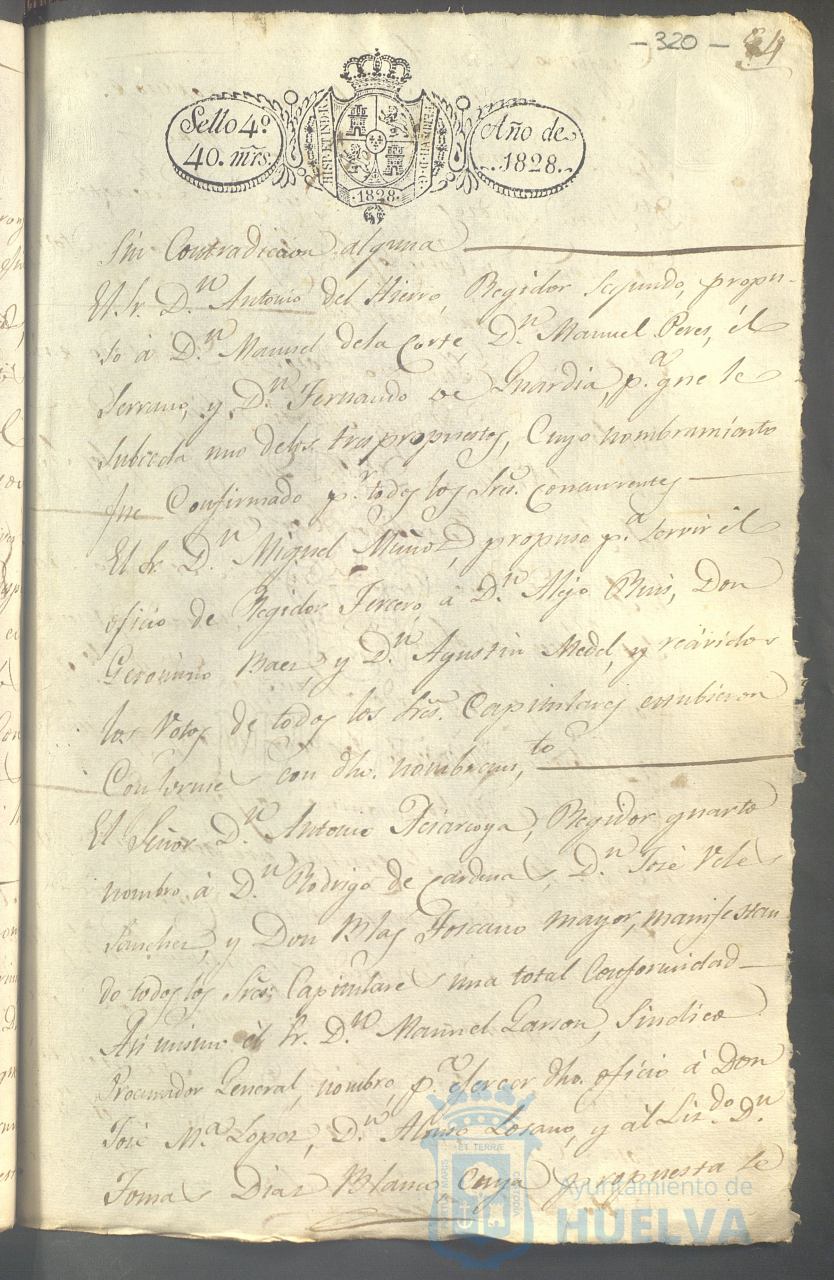 - 320 - 84
Sello 4º
40. mrs.
HISP. ET IND. R.
1828
Año de
1828.
sin Contradicion alguna
El Sr. D.n Antonio del Hierro, Regidor segundo, propu-
so à D.n Manuel dela Corte, D.n Manuel Peres, él
Serrano, y D.n Fernando de Guardia, p.a que le
subceda uno delos tres propuestos, Cuyo nombramiento
fue Confirmado p.r todos los Sres. concurrentes
El Sr. D.n Miguel Muñoz, propuso p.a servir él
oficio de Regidor Tercero, à D.n Alejo Ruis, Don
Geronimo Baez, y D.n Agustin Medel, y recividos
los Votos de todos los Sres. Capitulares estubieron
Conforme con dho. nombram.to
El Señor D.n Antonio Regidor quarto
nombro à D.n Rodrigo de Cardenas, D.n José Veles
Sanchez, y Don Blas Toscano mayor, manifestan-
do todos los Sres. Capitulares una total Conformidad
Asi mismo él Sr. D.n Manuel Garson, Sindico
Procurador General, nombro, p.a ejercer dho. oficio à Don
José M.a Lopez, D.n Alonso Losano, y àl Liz.do D.n
Tomas Dias Blanco, Cuya propuesta se
PORTUS MARIS ET TERRÆ CUSTODIA
Ayuntamiento de
HUELVA